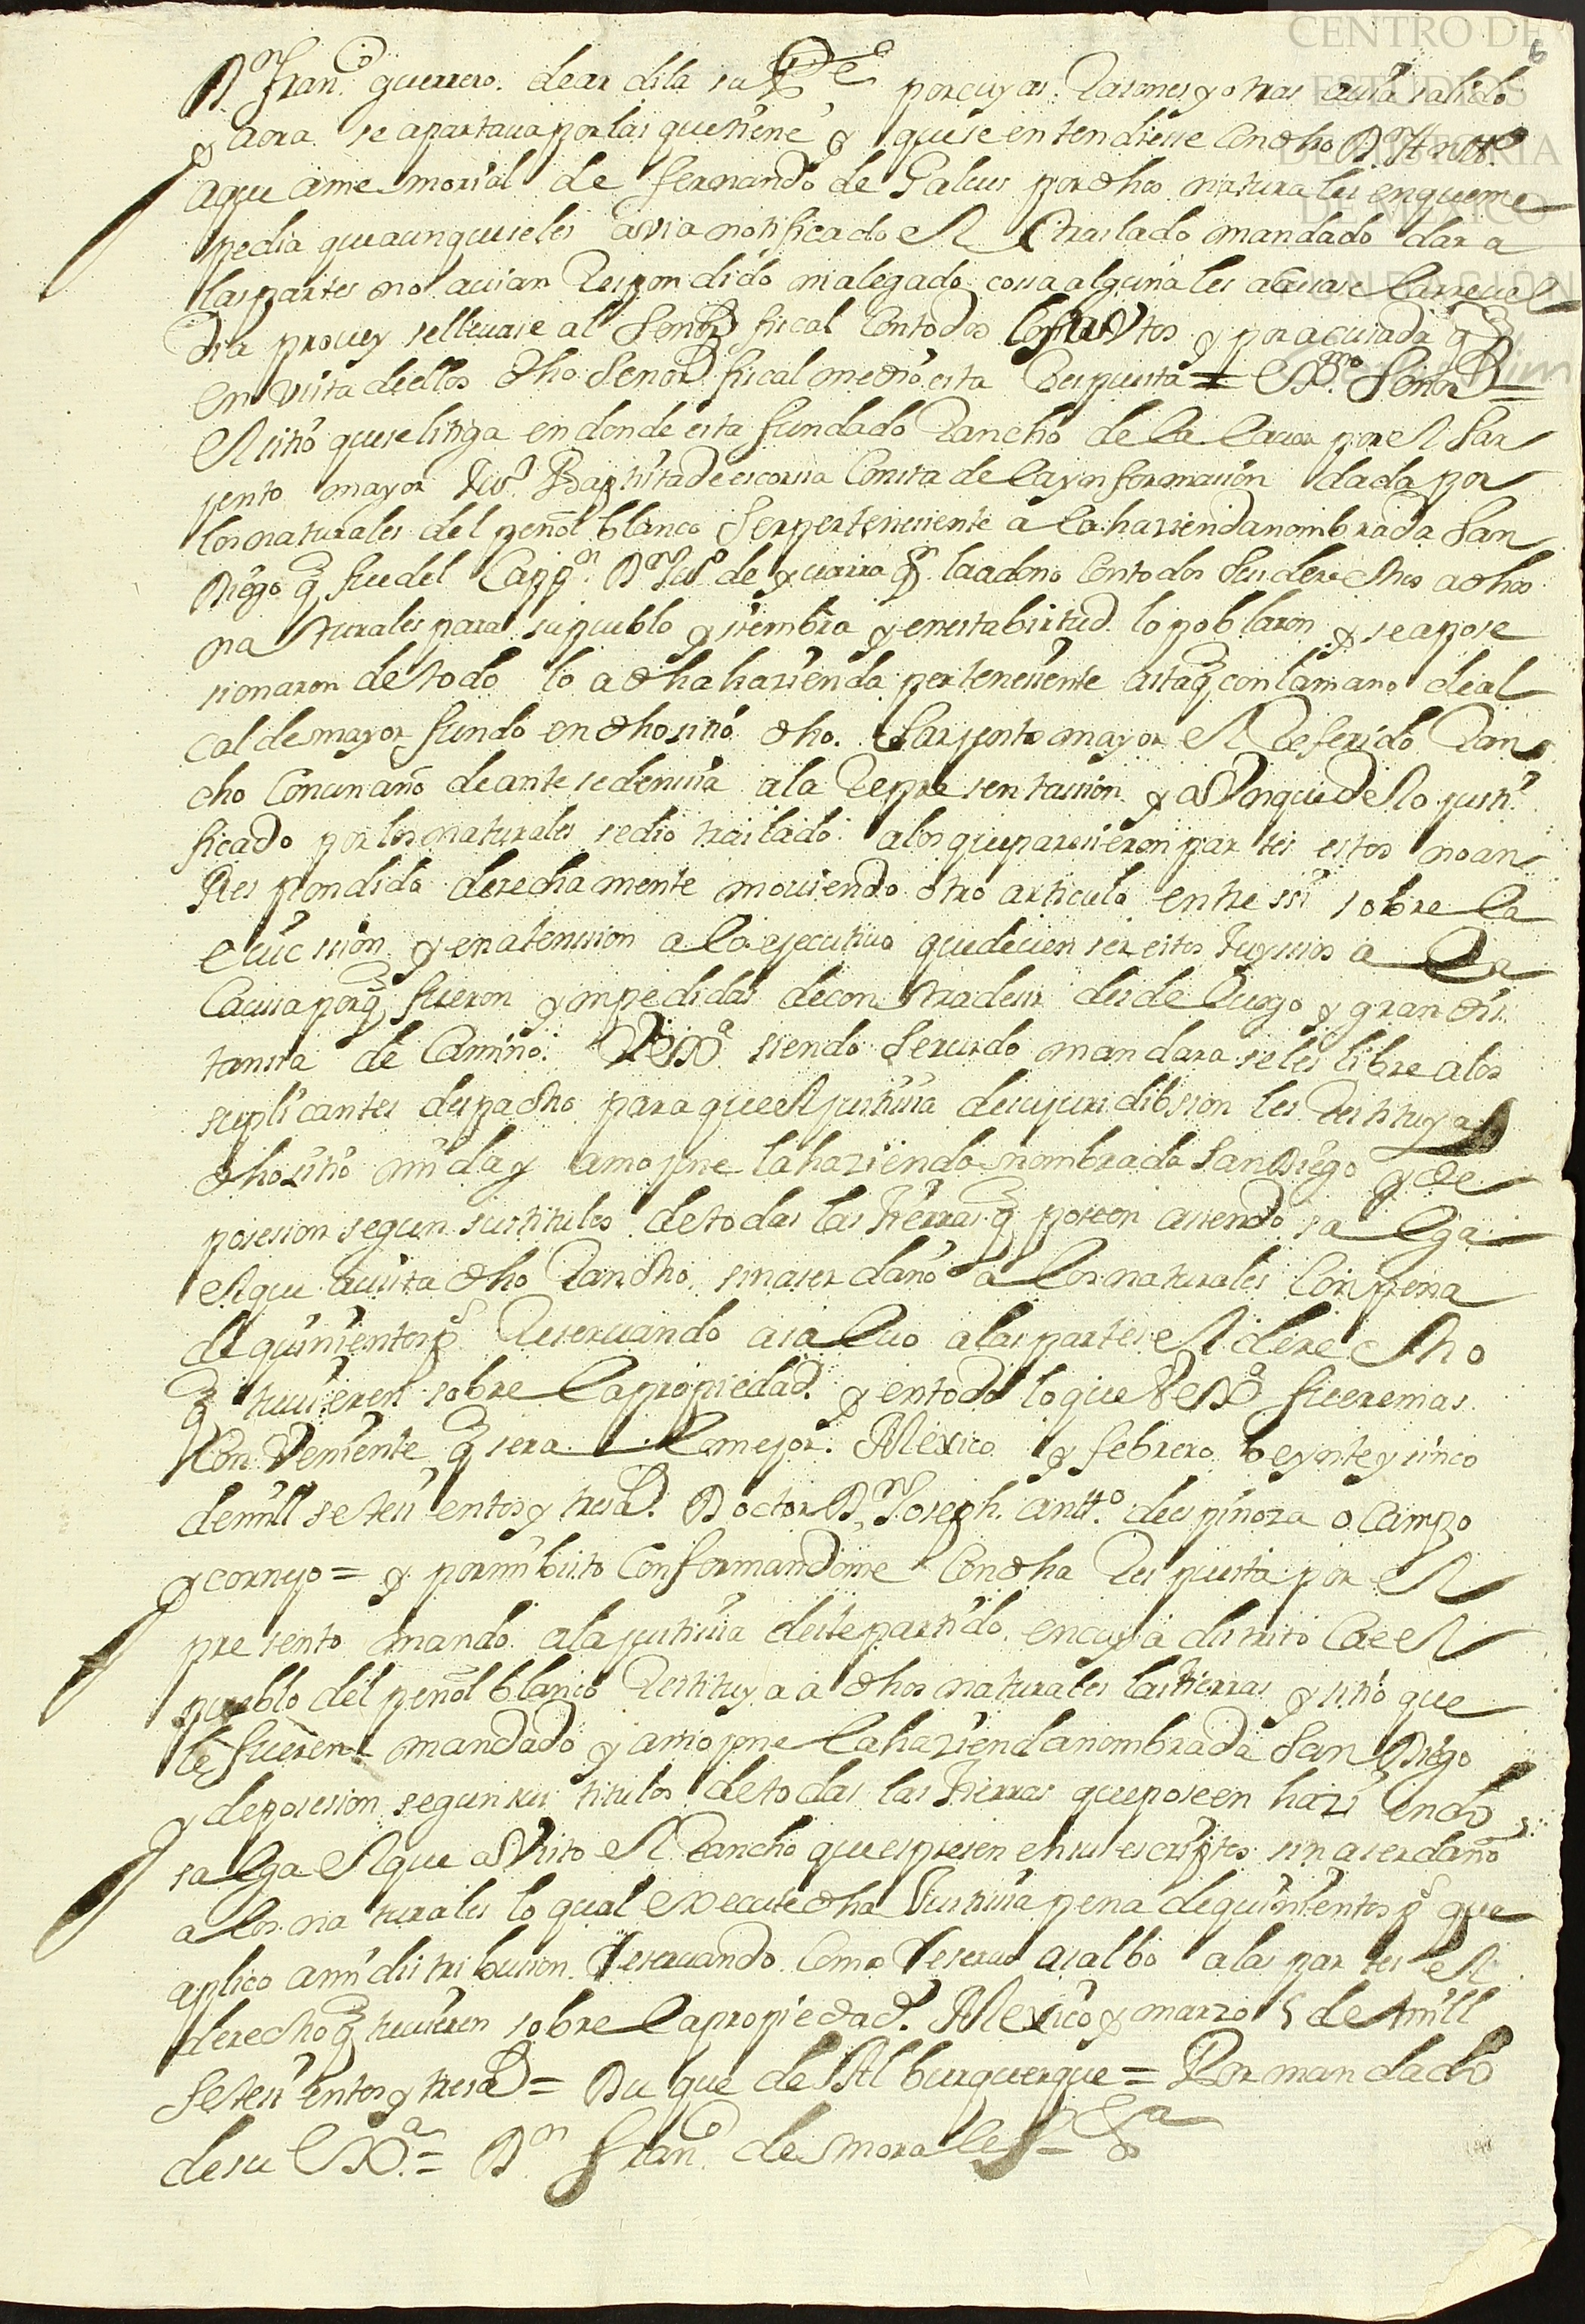 CENTRO DE
ESTUDIOS
DE HISTORIA
DE MEXICO
FUNDACIÓN
6
Dn Franco guerrero. de ardila su Pte por cuyas Rasones y otras avia salido
y aora se apartaua por las que tiene y que se entendiesse con dho Dn Antto
a que a memorial de fernando de Galues por dhos naturales en que me
pedia que aunque se les avia notificado el traslado mandado dar a
las partes no auian Respondido ni alegado cossa alguna les acusase la reuel
dia provey se lleuase al Senor fiscal con todos los autos y por acusada q
en vista de ellos dho Senor fiscal me dio esta Respuesta = Exmo Señor =
El sitio que se litiga en donde esta fundado Rancho de la lauor por el Sar
jento mayor Juo Baptista de escorsa Consta de la ynformasion dada por
los naturales del peñol blanco Ser pertenesiente a la hazienda nombrada San
Diego q fue del Cappn Dn Juo de qn la dono con todos sus derechos a dhos
naturales para su pueblo y siembra y en esta birtud lo poblaron y se apose
sionaron de todo lo a dha hazienda pertenesiente asta q con la mano de al
calde mayor fundo en dho sitio dho. Sarjento mayor el Referido Ran
cho con un año de antesedensia a la Representassion y aunque de lo justi
ficado por los naturales se dio traslado a los que paresieron partes estos no an
Respondido derechamente mouiendo otro articulo entre ssi sobre la
euicsion y en atension a lo ejecutiuo que deuen ser estos Juysios a la
Caussa porq fueron ympedidas de contradesir desde luego y gran dis
tansia de Camino. Vexa siendo Seruido mandara se les libre a los
suplicantes despacho para que el justisia de su juridibsion les Restituya
dho sitio mida y amojone la hazienda nombrada San Diego y de
posesion segun sus titulos de todas las tierras q poseen asiendo salga
el que auita dho Rancho sin aser daño a los naturales Con pena
de quinientos ps Reseruando a saluo a las partes el derecho
q tuuieren sobre la propiedad y en todo lo que Vexa fuere mas
Conveniente q sera lo mejor. Mexico y febrero beynte y sinco
de mill setesientos y tres as. Doctor Dn Joseph antto de espinoza ocampo
y cornejo = y por mi bisto Conformandome Con dha Respuesta por el
presente mando a la justisia deste partido en cuya distrito Cae el
pueblo del peñol blanco Restituya a dhos naturales las tierras y sitio que
le fueren mandado y amojone la hazienda nombrada San Diego
y de posesion segun sus titulos de todas las tierras que poseen haziendo
salga el que a visto el Rancho que espresen en su escripto sin aser daño
a los naturales lo qual execute dha Justisia pena de quinientos ps que
aplico a mi distribusion Reseruando Como Reseruo a salbo a las partes el
derecho q tuuieren sobre la propiedad. Mexico y marzo 5 de mill
setesientos y tres as = Duque de Alburquerque = Por mandado
de su Exa = Dn Franco de morales =